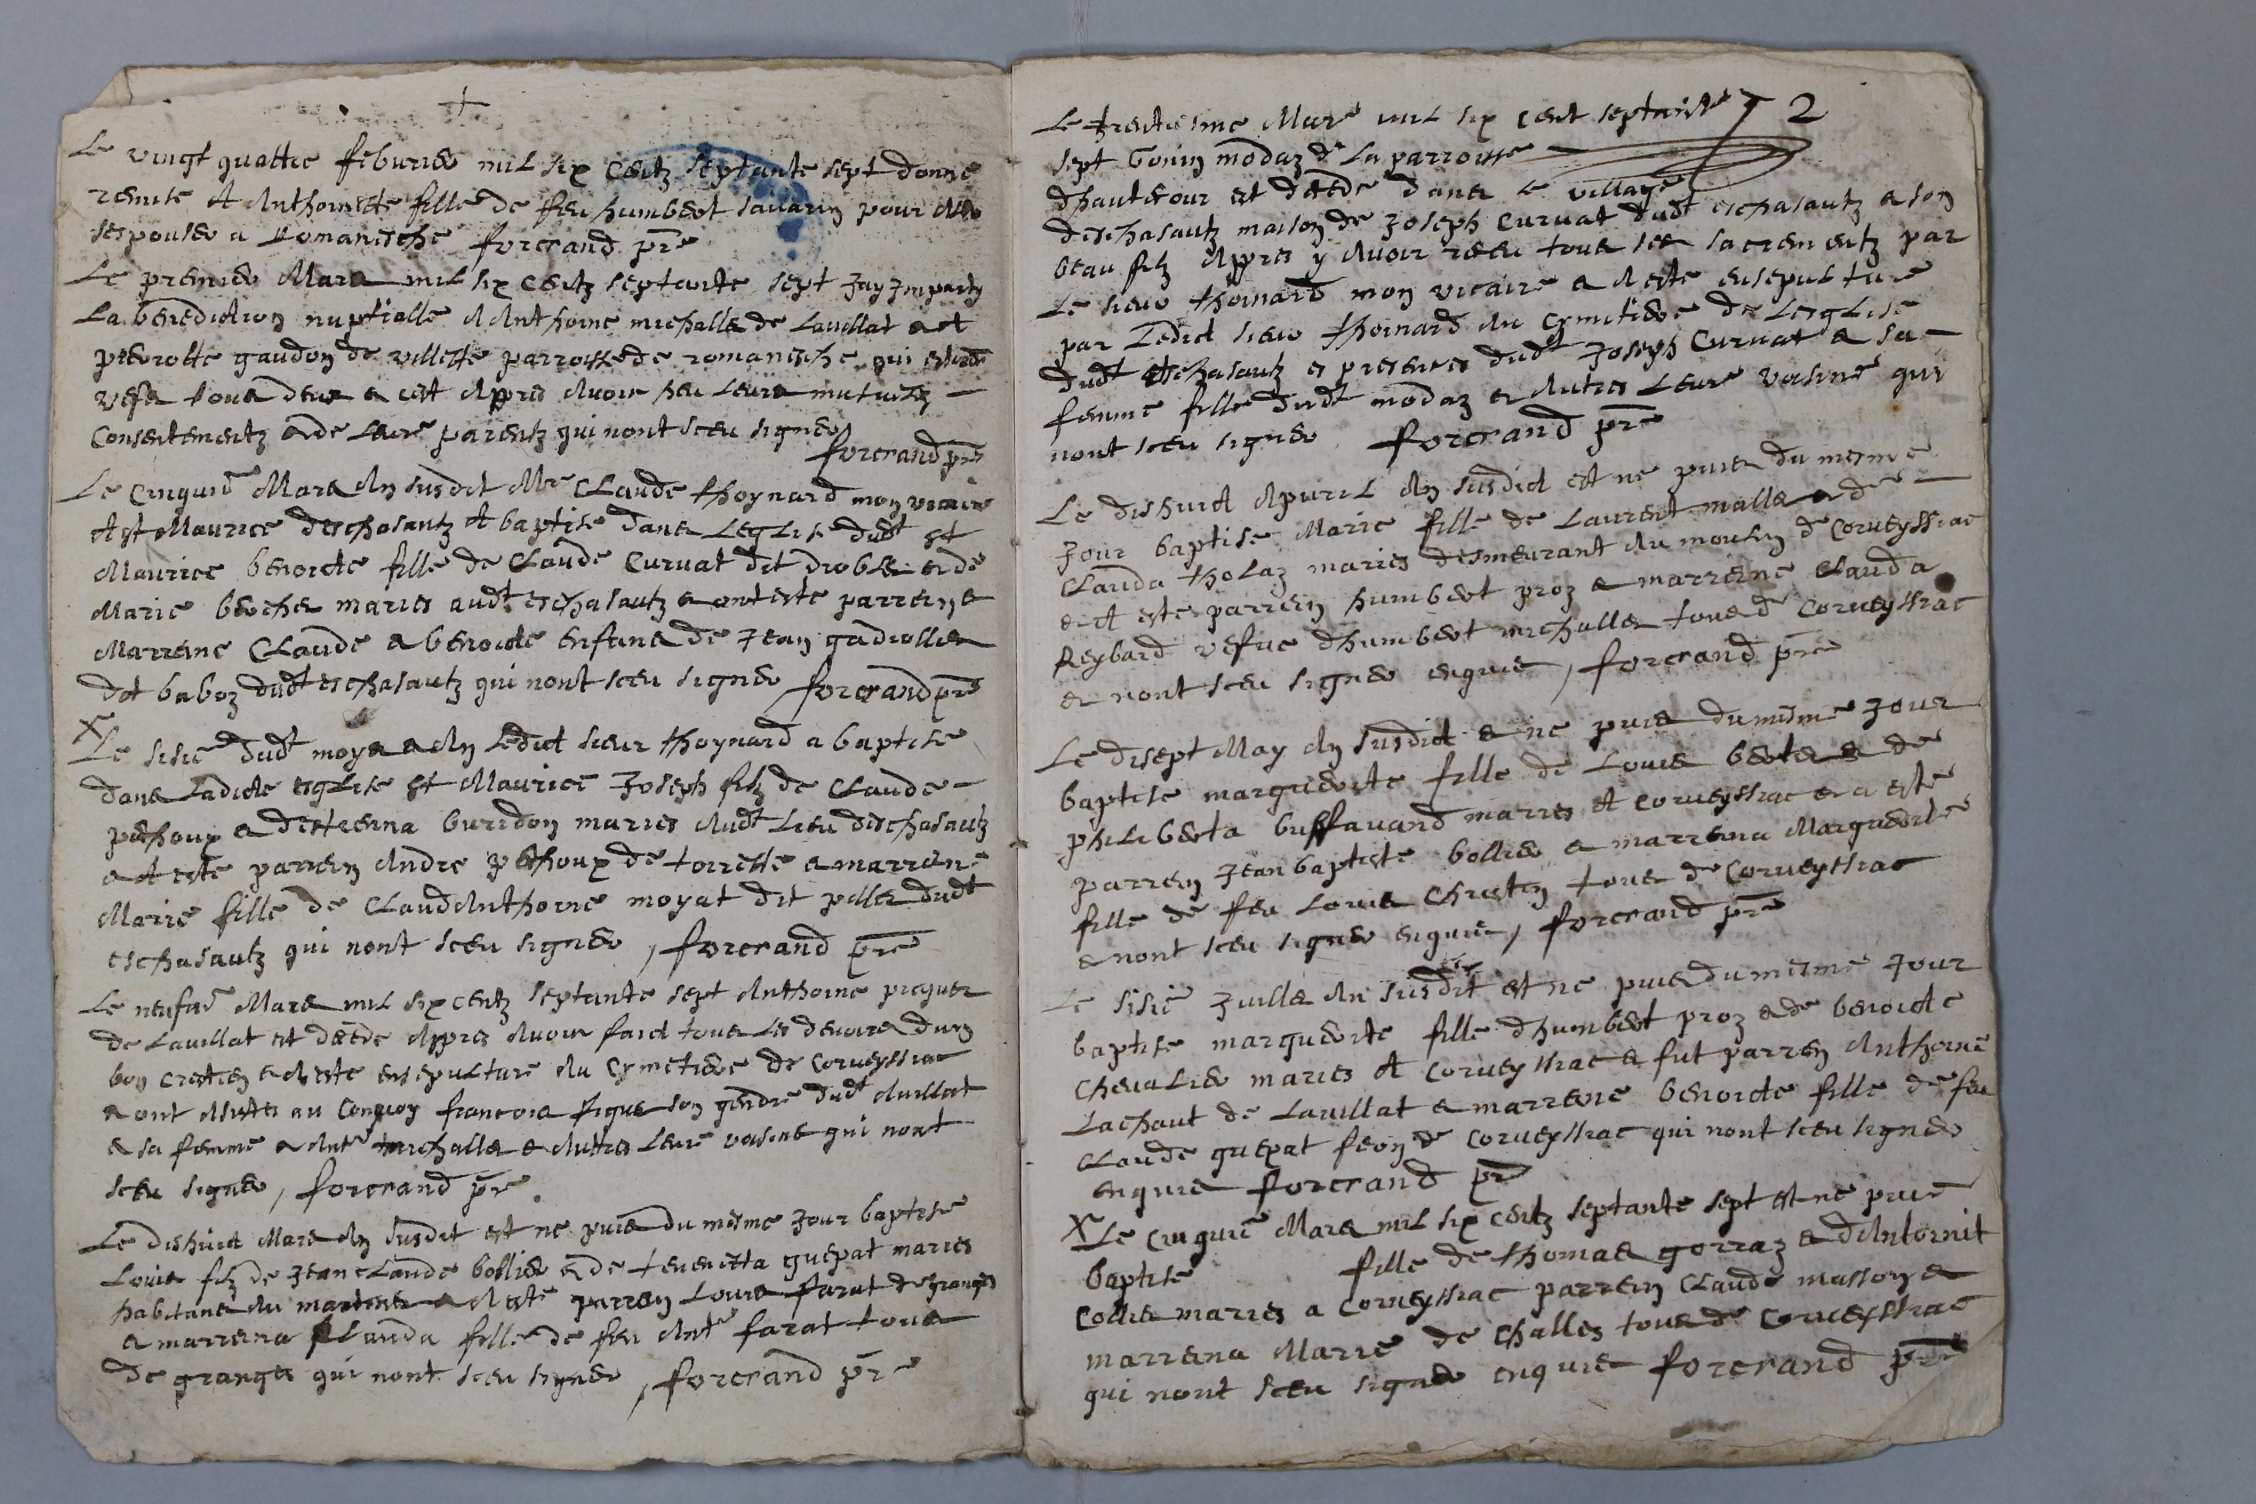 +
Le vingt quattre feburier mil six centz septante sept donné
remise A Anthoinette fille de feu humbert savarin pour aller
sespouser a Romanesche forcrand pre
Le premier Mars mil six centz septante sept Jay Imparty
La benediction nuptialle A Anthoine michallé de Lavillat et A
pierrotte gaudon de villette parroisse de romanesche qui
tous deux et cest Appres Avoir heu leurs mutuelz
Consentementz et de leurs parentz qui nont sceu signer
forcrand pre
Le cinquie Mars An susdit Mre CLaude thoynard mon vicaire
A st Maurice deschasautz A baptise dans LegLise dudt st
Maurice benoicte fille de Claude Curvat dit droblet et de
Marie berche maries audt eschasautz et ont este parrein et
Marreine CLaude et benoicte enfans de Jean gadiollet
dit baboz dudt eschasautz qui nont sceu signer forcrand pre
X Le sisie dudt moys et An Ledict sieur thoynard a baptise
dans Ladicte esgLise st Maurice Joseph filz de CLaude
pethoux et destienna buridon maries Audt Lieu deschasautz
et A este parrein Andre pethoux de torrette et marreine
Marie fille de CLaudAnthoine moyat dit pellet dudt
eschasautz qui nont sceu signer, forcrand pre
Le neufie Mars mil six centz septante sept Anthoine piquet
de Lavillat est decede Appres Avoir faict tous Les devoirs dun
bon crestien et A este ensepulturé Au Cymetiere de Corveyssiac
et ont Assistes au Convoy francois figue son gendre dudt Avillat
et sa femme et Ante michallet et Autres Leurs voisins qui nont
sceu signer, forcrand pre
Le dishuict Mars An susdit est ne puis du mesme Jour baptise
Louis filz de Jean cLaude bollier et de tevenetta guepat maries
habitans du et A este parrein Louis farat de granges
et marreina CLauda fille de feu Ante farat tous
de granges qui nont sceu signer, forcrand pre
2
Le trentiesme Mars mil six cent septante
sept Gonin modaz de La parroisse
dhautecour est decede dans Le village
deschasautz maison de Joseph Curvat dudt eschasautz et son
beau filz Appres y Avoir receu tous ses sacrementz par
Le sieur thoinard mon vicaire et A este ensepulture
par Ledict sieur thoinard Au Cymetiere de LesgLise
dudt eschasautz es presences dudt Joseph Curvat et sa
femme fille dudt modaz et Autres Leurs voisins qui
nont sceu signer forcrand pre
Le dishuict Apvril An susdict est ne puis du mesme
Jour baptise Marie fille de Laurent mallet et de
CLauda thoLaz maries desmeurant Au moulin de Corveyssiac
et A este parrein humbert proz et marreine CLauda
Reybard vefue dhumbert michallet tous de Corveyssiac
et nont sceu signer enquis, forcrand pre
Le disept May An susdict et ne puis du mesme Jour
baptise marguerite fille de Louis bertet et de
phiLiberta buffavand maries A Corveyssiac et a este
parrein Jean baptiste bollier et marreina Marguerite
fille de feu Louis Christin tous de Corveyssiac
et nont sceu signer enquis, forcrand pre
Le sisie Juillet An susdit est ne puis du mesme Jour
baptise marguerite fille dhumbert proz et de benoicte
ChevaLier maries A Corveyssiac et fut parrein Anthoine
Lachaut de Lavillat et marreine benoicte fille de feu
CLaude guepat feon de Corveyssiac qui nont sceu signer
enquis forcrand pre
X Le cinquie Mars mil six centz septante sept est ne puis
baptise fille de thomas gorraz et dAntoinit
Collet maries a Corveyssiac parrein CLaude masson et
marreina Marie de Challes tous de Corveyssiac
qui nont sceu signer enquis forcrand pre